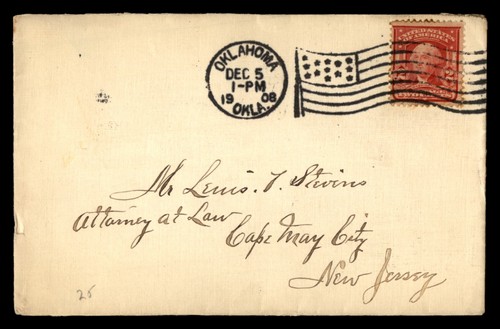 OKLAHOMA
DEC 5
1-PM
1908
OKLA.
UNITED STATES
OF AMERICA
Mr Lewis. T. Stevens
Attorney at Law
Cape May City
New Jersey
25